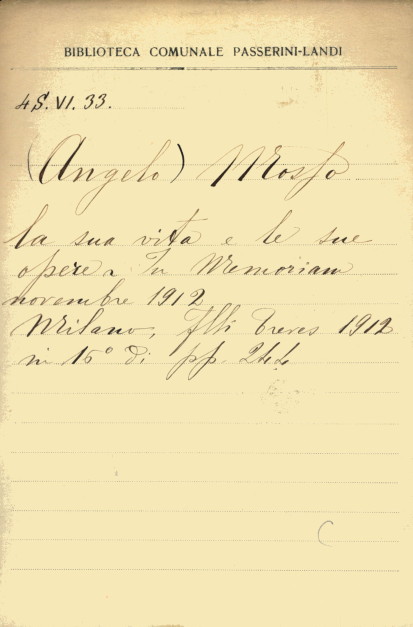 BIBLIOTECA COMUNALE PASSERINI-LANDI
4S. VI. 33.
(Angelo) Mosso
la sua vita e le sue
opere In Memoriam
novembre 1912
Milano, Flli Treves 1912
in 16° di pp. 244
C